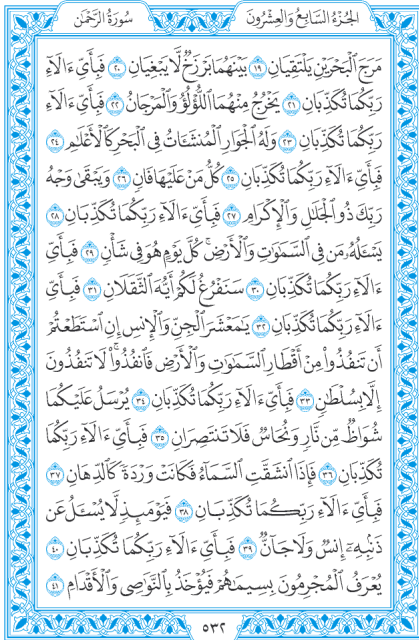 الجُزْءُ السَّابِعُ وَالعِشْرُونَ
سُورَةُ الرَّحْمٰن
مَرَجَ ٱلْبَحْرَيْنِ يَلْتَقِيَانِ ١٩ بَيْنَهُمَا بَرْزَخٌ لَّا يَبْغِيَانِ ٢٠ فَبِأَيِّ ءَالَآءِ
رَبِّكُمَا تُكَذِّبَانِ ٢١ يَخْرُجُ مِنْهُمَا ٱللُّؤْلُؤُ وَٱلْمَرْجَانُ ٢٢ فَبِأَيِّ ءَالَآءِ
رَبِّكُمَا تُكَذِّبَانِ ٢٣ وَلَهُ ٱلْجَوَارِ ٱلْمُنشَـَٔاتُ فِي ٱلْبَحْرِ كَٱلْأَعْلَٰمِ ٢٤
فَبِأَيِّ ءَالَآءِ رَبِّكُمَا تُكَذِّبَانِ ٢٥ كُلُّ مَنْ عَلَيْهَا فَانٍ ٢٦ وَيَبْقَىٰ وَجْهُ
رَبِّكَ ذُو ٱلْجَلَٰلِ وَٱلْإِكْرَامِ ٢٧ فَبِأَيِّ ءَالَآءِ رَبِّكُمَا تُكَذِّبَانِ ٢٨
يَسْـَٔلُهُۥ مَن فِي ٱلسَّمَٰوَٰتِ وَٱلْأَرْضِ ۚ كُلَّ يَوْمٍ هُوَ فِي شَأْنٍ ٢٩ فَبِأَيِّ
ءَالَآءِ رَبِّكُمَا تُكَذِّبَانِ ٣٠ سَنَفْرُغُ لَكُمْ أَيُّهَ ٱلثَّقَلَانِ ٣١ فَبِأَيِّ
ءَالَآءِ رَبِّكُمَا تُكَذِّبَانِ ٣٢ يَٰمَعْشَرَ ٱلْجِنِّ وَٱلْإِنسِ إِنِ ٱسْتَطَعْتُمْ
أَن تَنفُذُوا۟ مِنْ أَقْطَارِ ٱلسَّمَٰوَٰتِ وَٱلْأَرْضِ فَٱنفُذُوا۟ ۚ لَا تَنفُذُونَ
إِلَّا بِسُلْطَٰنٍ ٣٣ فَبِأَيِّ ءَالَآءِ رَبِّكُمَا تُكَذِّبَانِ ٣٤ يُرْسَلُ عَلَيْكُمَا
شُوَاظٌ مِّن نَّارٍ وَنُحَاسٌ فَلَا تَنتَصِرَانِ ٣٥ فَبِأَيِّ ءَالَآءِ رَبِّكُمَا
تُكَذِّبَانِ ٣٦ فَإِذَا ٱنشَقَّتِ ٱلسَّمَآءُ فَكَانَتْ وَرْدَةً كَٱلدِّهَانِ ٣٧
فَبِأَيِّ ءَالَآءِ رَبِّكُمَا تُكَذِّبَانِ ٣٨ فَيَوْمَئِذٍ لَّا يُسْـَٔلُ عَن
ذَنۢبِهِۦٓ إِنسٌ وَلَا جَآنٌّ ٣٩ فَبِأَيِّ ءَالَآءِ رَبِّكُمَا تُكَذِّبَانِ ٤٠
يُعْرَفُ ٱلْمُجْرِمُونَ بِسِيمَٰهُمْ فَيُؤْخَذُ بِٱلنَّوَٰصِي وَٱلْأَقْدَامِ ٤١
٥٣٢